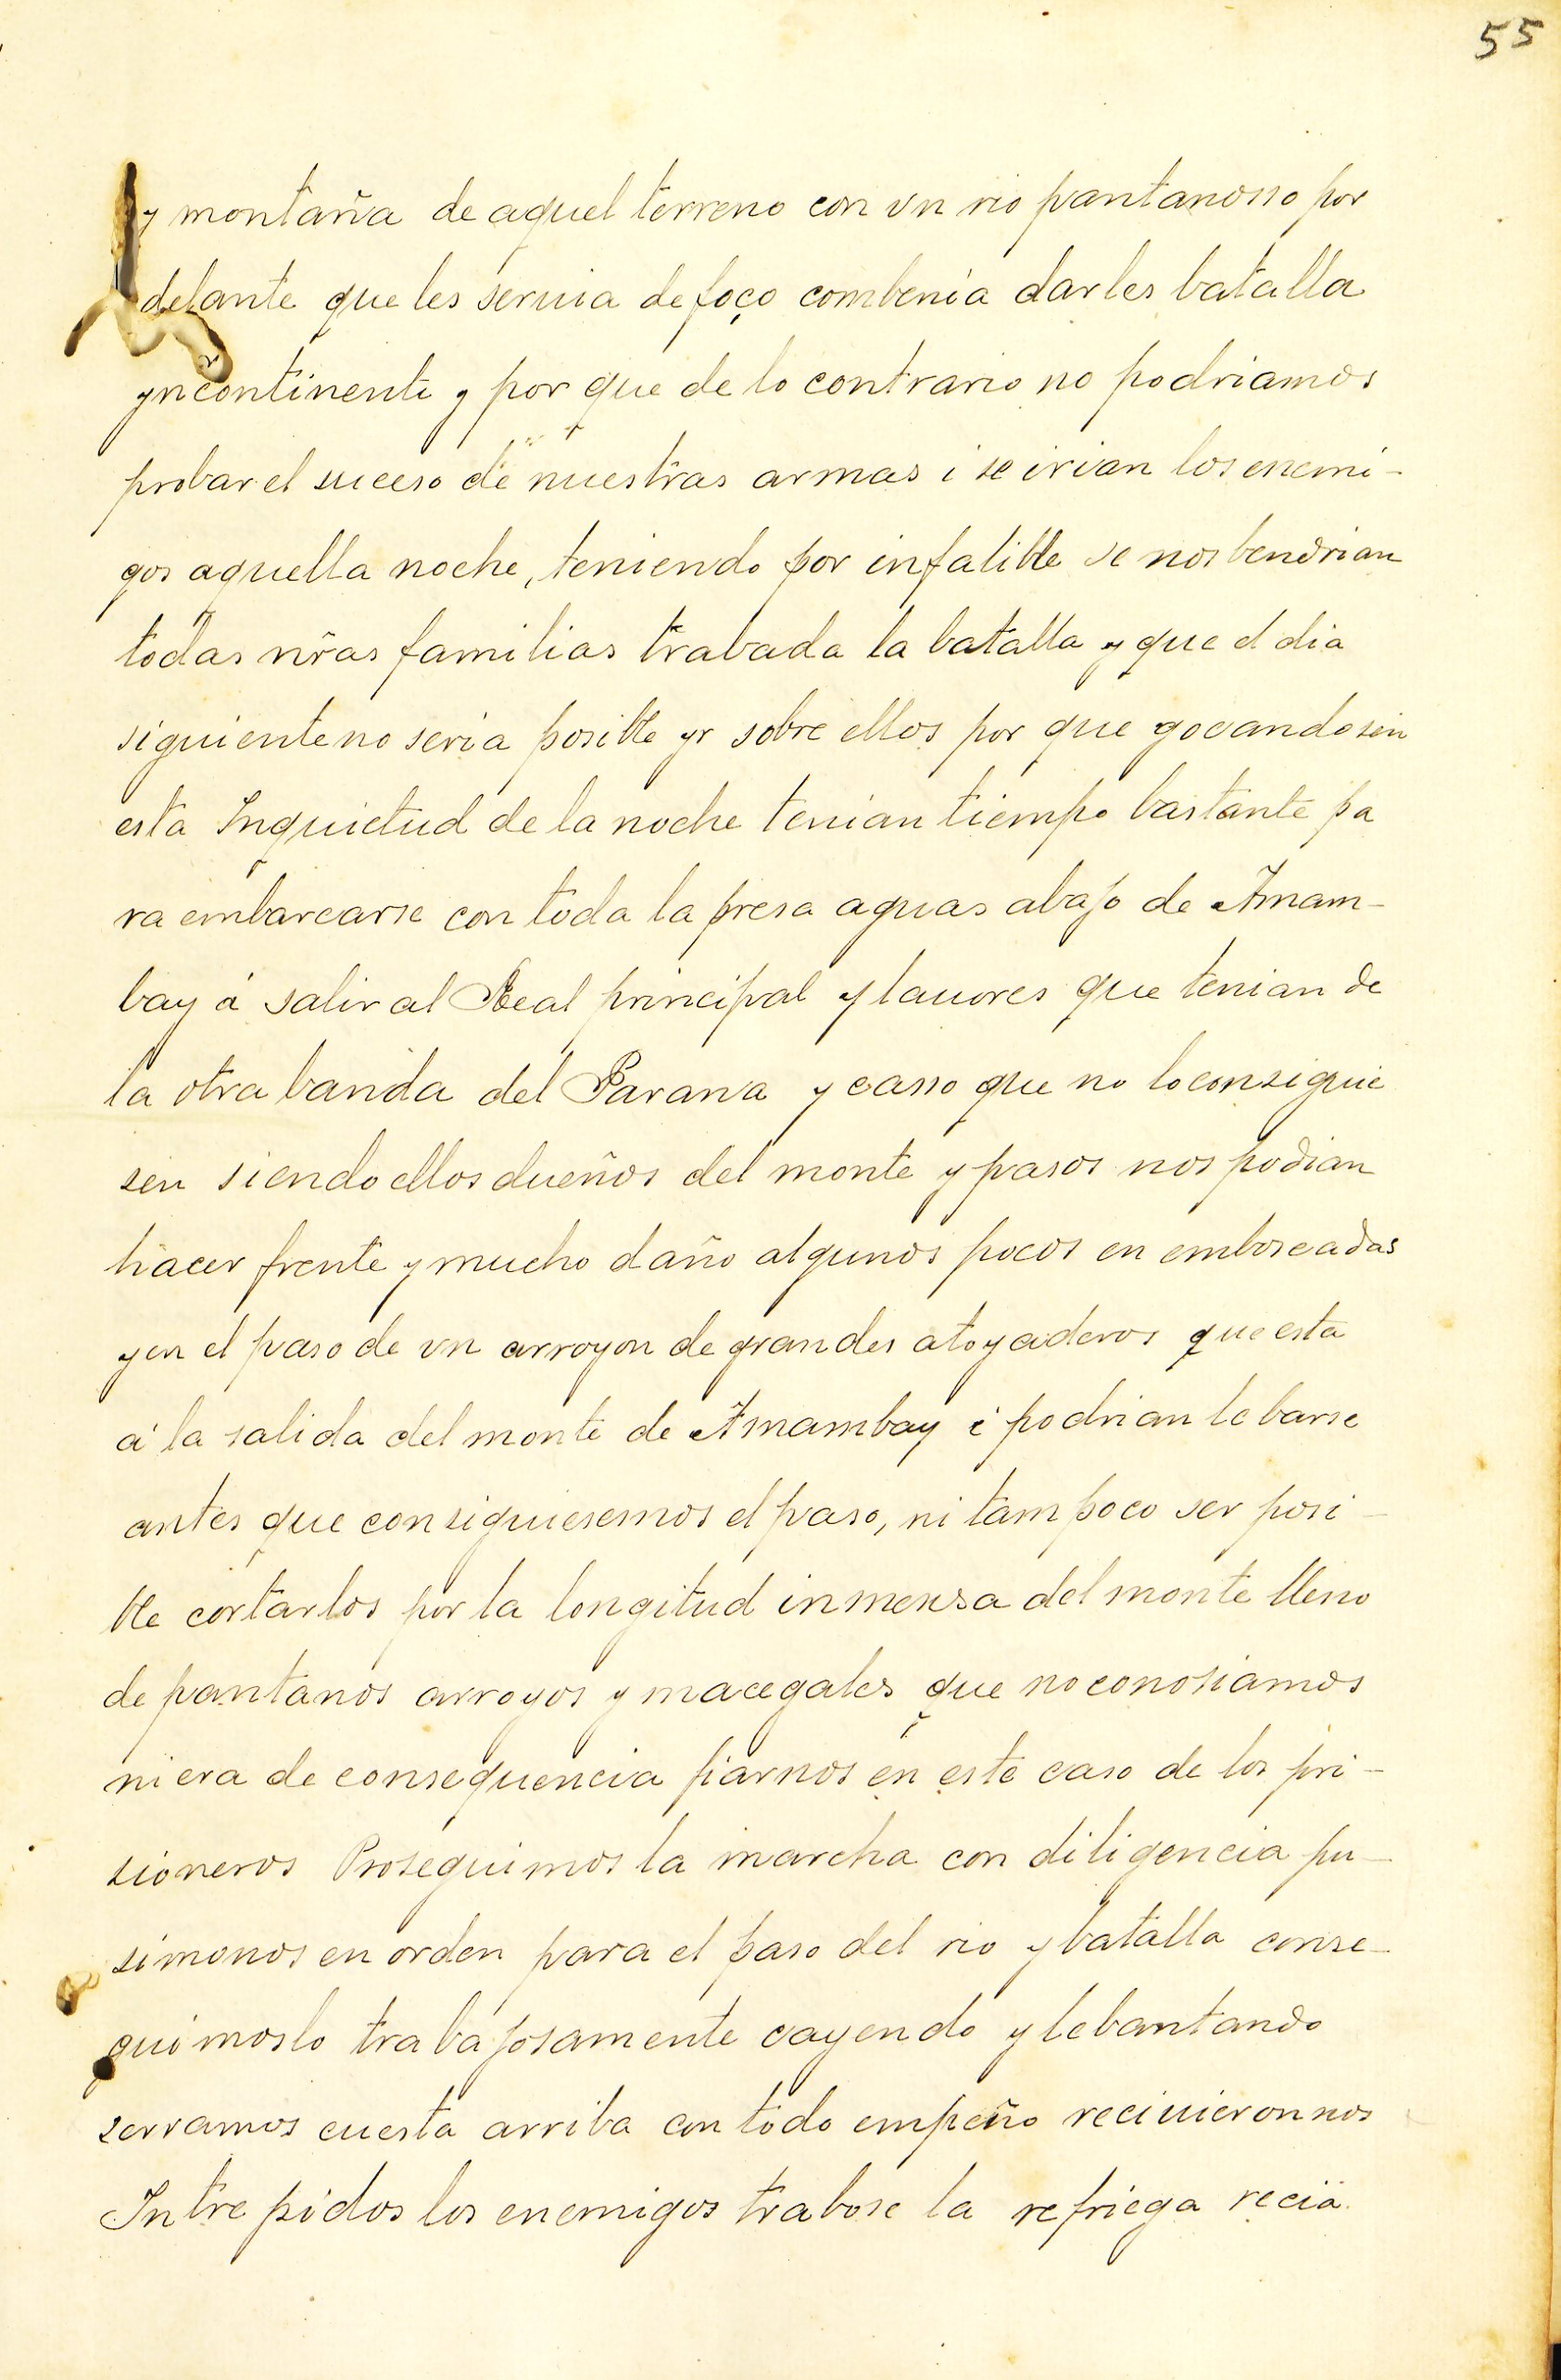 55
y montaña de aquel terreno con vn rio pantanosso por
delante que les seruia de foço combenia darles batalla
yncontinenti y por que de lo contrario no podriamos
probar el suceso de nuestras armas i se irian los enemi-
gos aquella noche, teniendo por infalible se nos bendrian
todas nr̃as familias trabada la batalla y que el dia
siguiente no seria posible yr sobre ellos por que gozando sin
esta Inquietud de la noche tenian tiempo bastante pa
ra embarcarse con toda la presa aguas abajo de Amam-
bay á salir al Real principal y lauores que tenian de
la otra banda del Parana y casso que no lo consiguie
sen siendo ellos dueños del monte y pasos nos podian
hacer frente y mucho daño algunos pocos en emboscadas
y en el paso de vn arroyon de grandes atoyaderos que esta
á la salida del monte de Amambay i podrian lebarse
antes que consiguiesemos el paso, ni tampoco ser posi-
ble cortarlos por la longitud inmensa del monte lleno
de pantanos arroyos y macegales que no conosiamos
ni era de consequencia fiarnos en este caso de los pri-
sioneros Proseguimos la marcha con diligencia pu-
simonos en orden para el paso del rio y batalla conse-
guimoslo trabajosamente cayendo y lebantando
serramos cuesta arriba con todo empeño reciuieronnos
Intrepidos los enemigos trabose la refriega recia